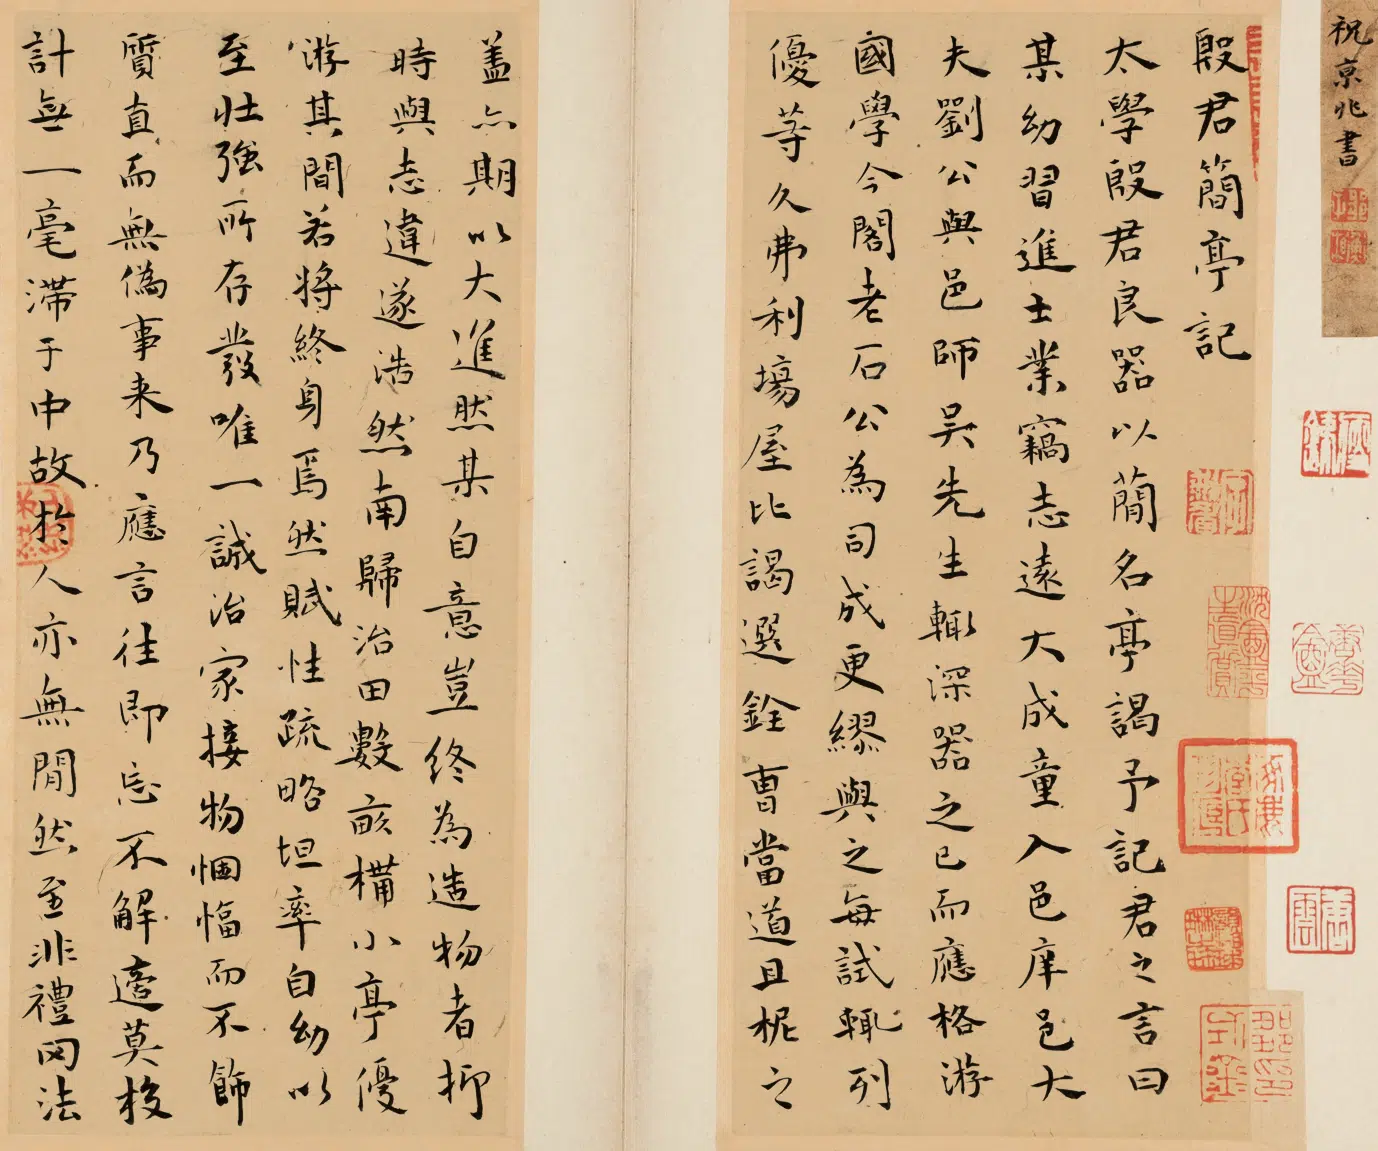 祝京兆書
殷君簡亭記
太學殷君良器以蕳名亭謁予記君之言曰
某幼習進士業竊志遠大成童入邑庠邑大
夫劉公與邑師吴先生輙深器之已而應格游
國學今閣老石公為司成更繆與之每試輒列
優等久弗利塲屋比謁選銓曹當道且柅之
盖亦期以大進然某自意豈終為造物者抑
時與志違遂浩然南歸治田數畝構小亭優
游其間若将終身焉然賦性疏略坦率自幼以
至壯強所存發唯一誠治家接物悃愊而不飾
質直而無偽事来乃應言往即忘不解邅莫梭
計無一毫滯于中故於人亦無閒然至非禮罔法